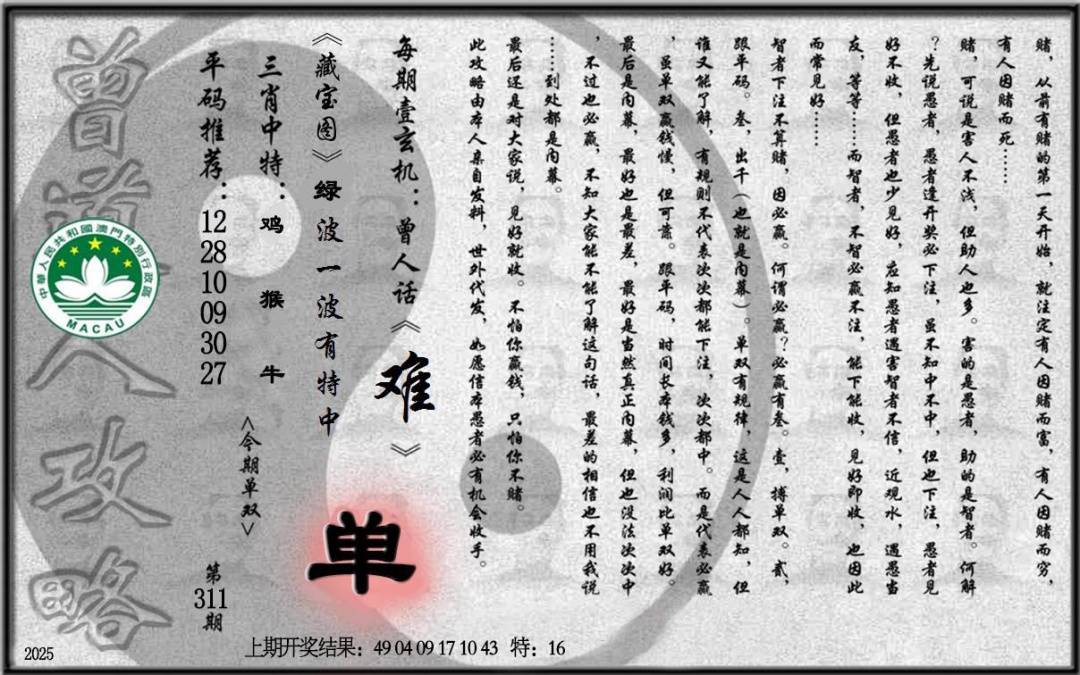 赌，从前有赌的第一天开始，就注定有人因赌而富，有人因赌而穷，
有人因赌而死……
赌，可说是害人不浅，但助人也多。害的是愚者，助的是智者。何解
？先说愚者，愚者逢开奖必下注，虽不知中不中，但也下注，愚者见
好不收，但愚者也少见好，应知愚者遇害智者不信，近观水，遇愚当
友，等等……而智者，不智必赢不注，能下能收，见好即收，也因此
而常见好……
智者下注不算赌，因必赢。何谓必赢？必赢有叁。壹，搏单双。贰，
跟单码。叁，出千（也就是内幕）。单双有规律，这是人人都知，但
谁又能了解，有规则不代表次次都能下注，次次都中。而是代表必赢
，虽单双赢钱慢，但可靠。跟单码，时间长本钱多，利润比单双好。
最后是内幕，最好也是最差，最好是当然真正内幕，但也没法次次中
，不过也必赢，不知大家能不能了解这句话，最差的相信也不用我说
……到处都是内幕。
最后还是对大家说，见好就收。不怕你赢钱，只怕你不赌。
此攻略由本人亲自发料，世外代发，如愿信本愚者必有机会收手。
每期壹玄机：曾人话《难》
《藏宝图》绿波一波有特中
三肖中特：鸡 猴 牛
平码推荐：12 28 10 09 30 27
<今期单双>
单
第311期
曾道人攻略
中華人民共和國澳門特別行政區
MACAU
2025
上期开奖结果：49 04 09 17 10 43 特：16